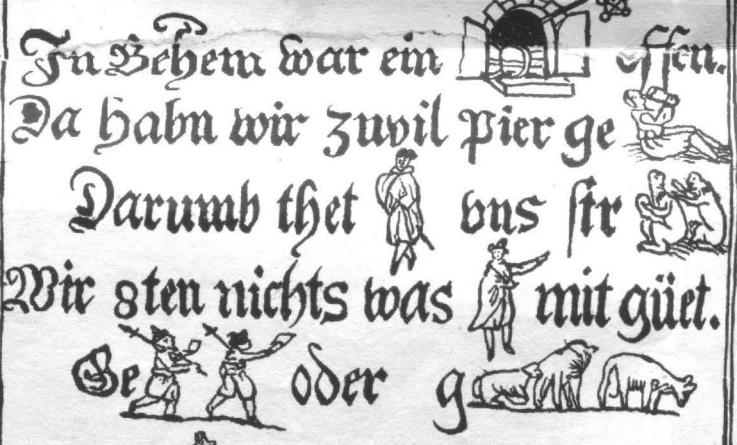 In Behem war ein essen.
Da habn wir zuvil pier ge
Darumb thet vns str
Wir 8ten nichts was mit güet.
Ge oder g